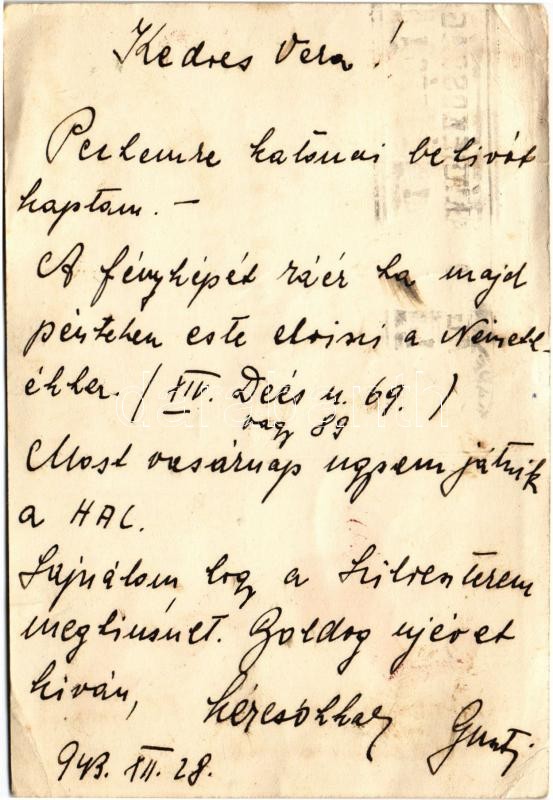 Kedves Vera!
katonai behivót
kaptam. —
A fényképét ráér ha majd
pénteken este elviszi a Németh-
ékhez. (XIV. Deés u. 69.)
vagy 89
Most vasárnap ugysem játszik
a HAC.
Sajnálom hogy a Szilveszterem
Boldog ujévet
kíván,
943. XII. 28.